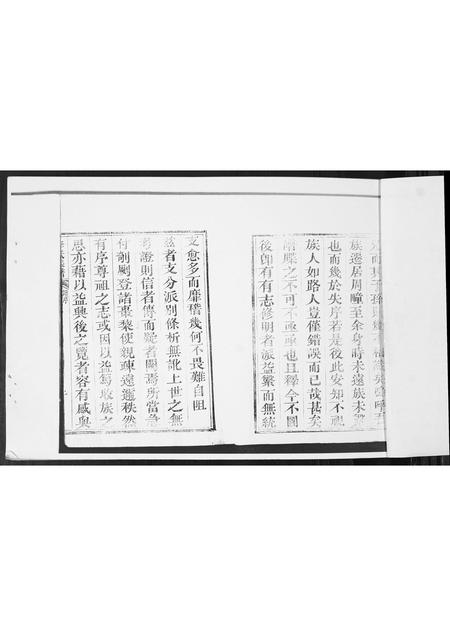 族遷居周疃至余身時未遠族未
也而幾於失序若是後此安知不視
族人如路人豈僅錯誤而已哉甚矣
譜牒之不可不亟亟也且釋今不圖
後卽有有志修明者族益繁而無統
文愈多而靡稽幾何不畏難自阻
茲者支分派別條析無訛上世之無
考證則信者傳而疑者闕焉所當急
付剞劂登諸棗棃使親疎遠邇秩然
有序尊祖之志或因以益篤收族之
思亦藉以益興後之覽者容有感與